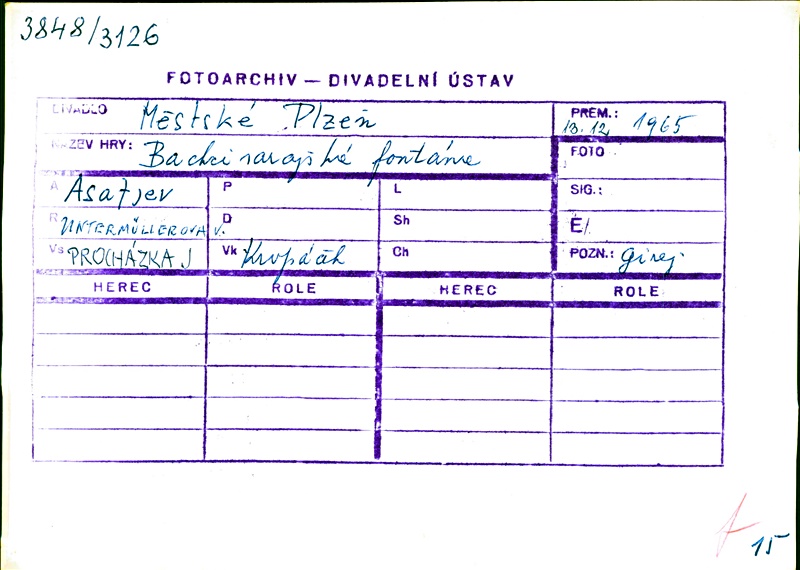 3848/3126
FOTOARCHIV — DIVADELNÍ ÚSTAV
DIVADLO Městské Plzeň
PREM.: 13.12. 1965
NÁZEV HRY: Bachčisarajské fontáne
FOTO
A Asafjev P L SIG.:
R UNTERMÜLLEROVA V. D Sh Ě/.
Vs PROCHÁZKA J Vk Kropáček Ch POZN.: Girej
HEREC ROLE HEREC ROLE
15